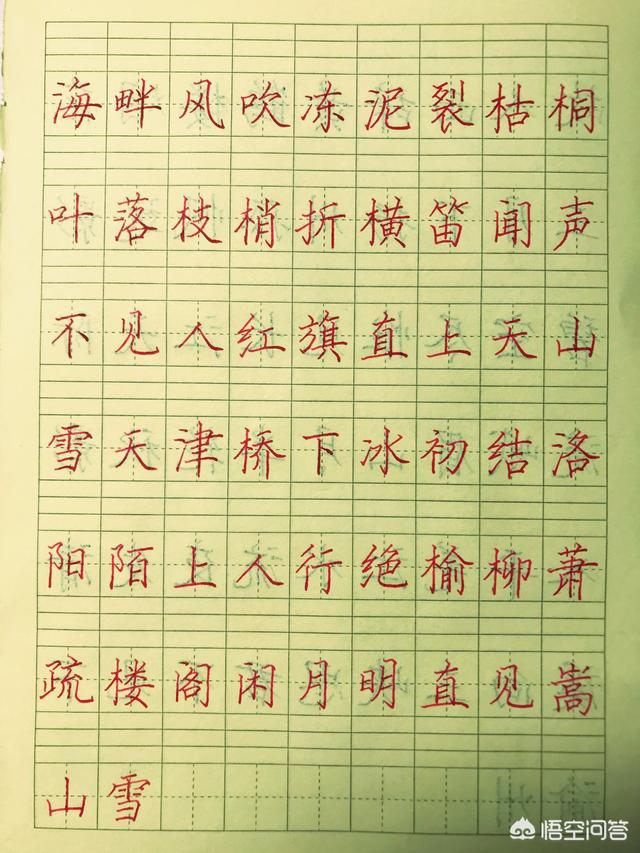 海畔风吹冻泥裂枯桐
叶落枝梢折横笛闻声
不见人红旗直上天山
雪天津桥下冰初结洛
阳陌上人行绝榆柳萧
疏楼阁闲月明直见嵩
山雪
悟空问答